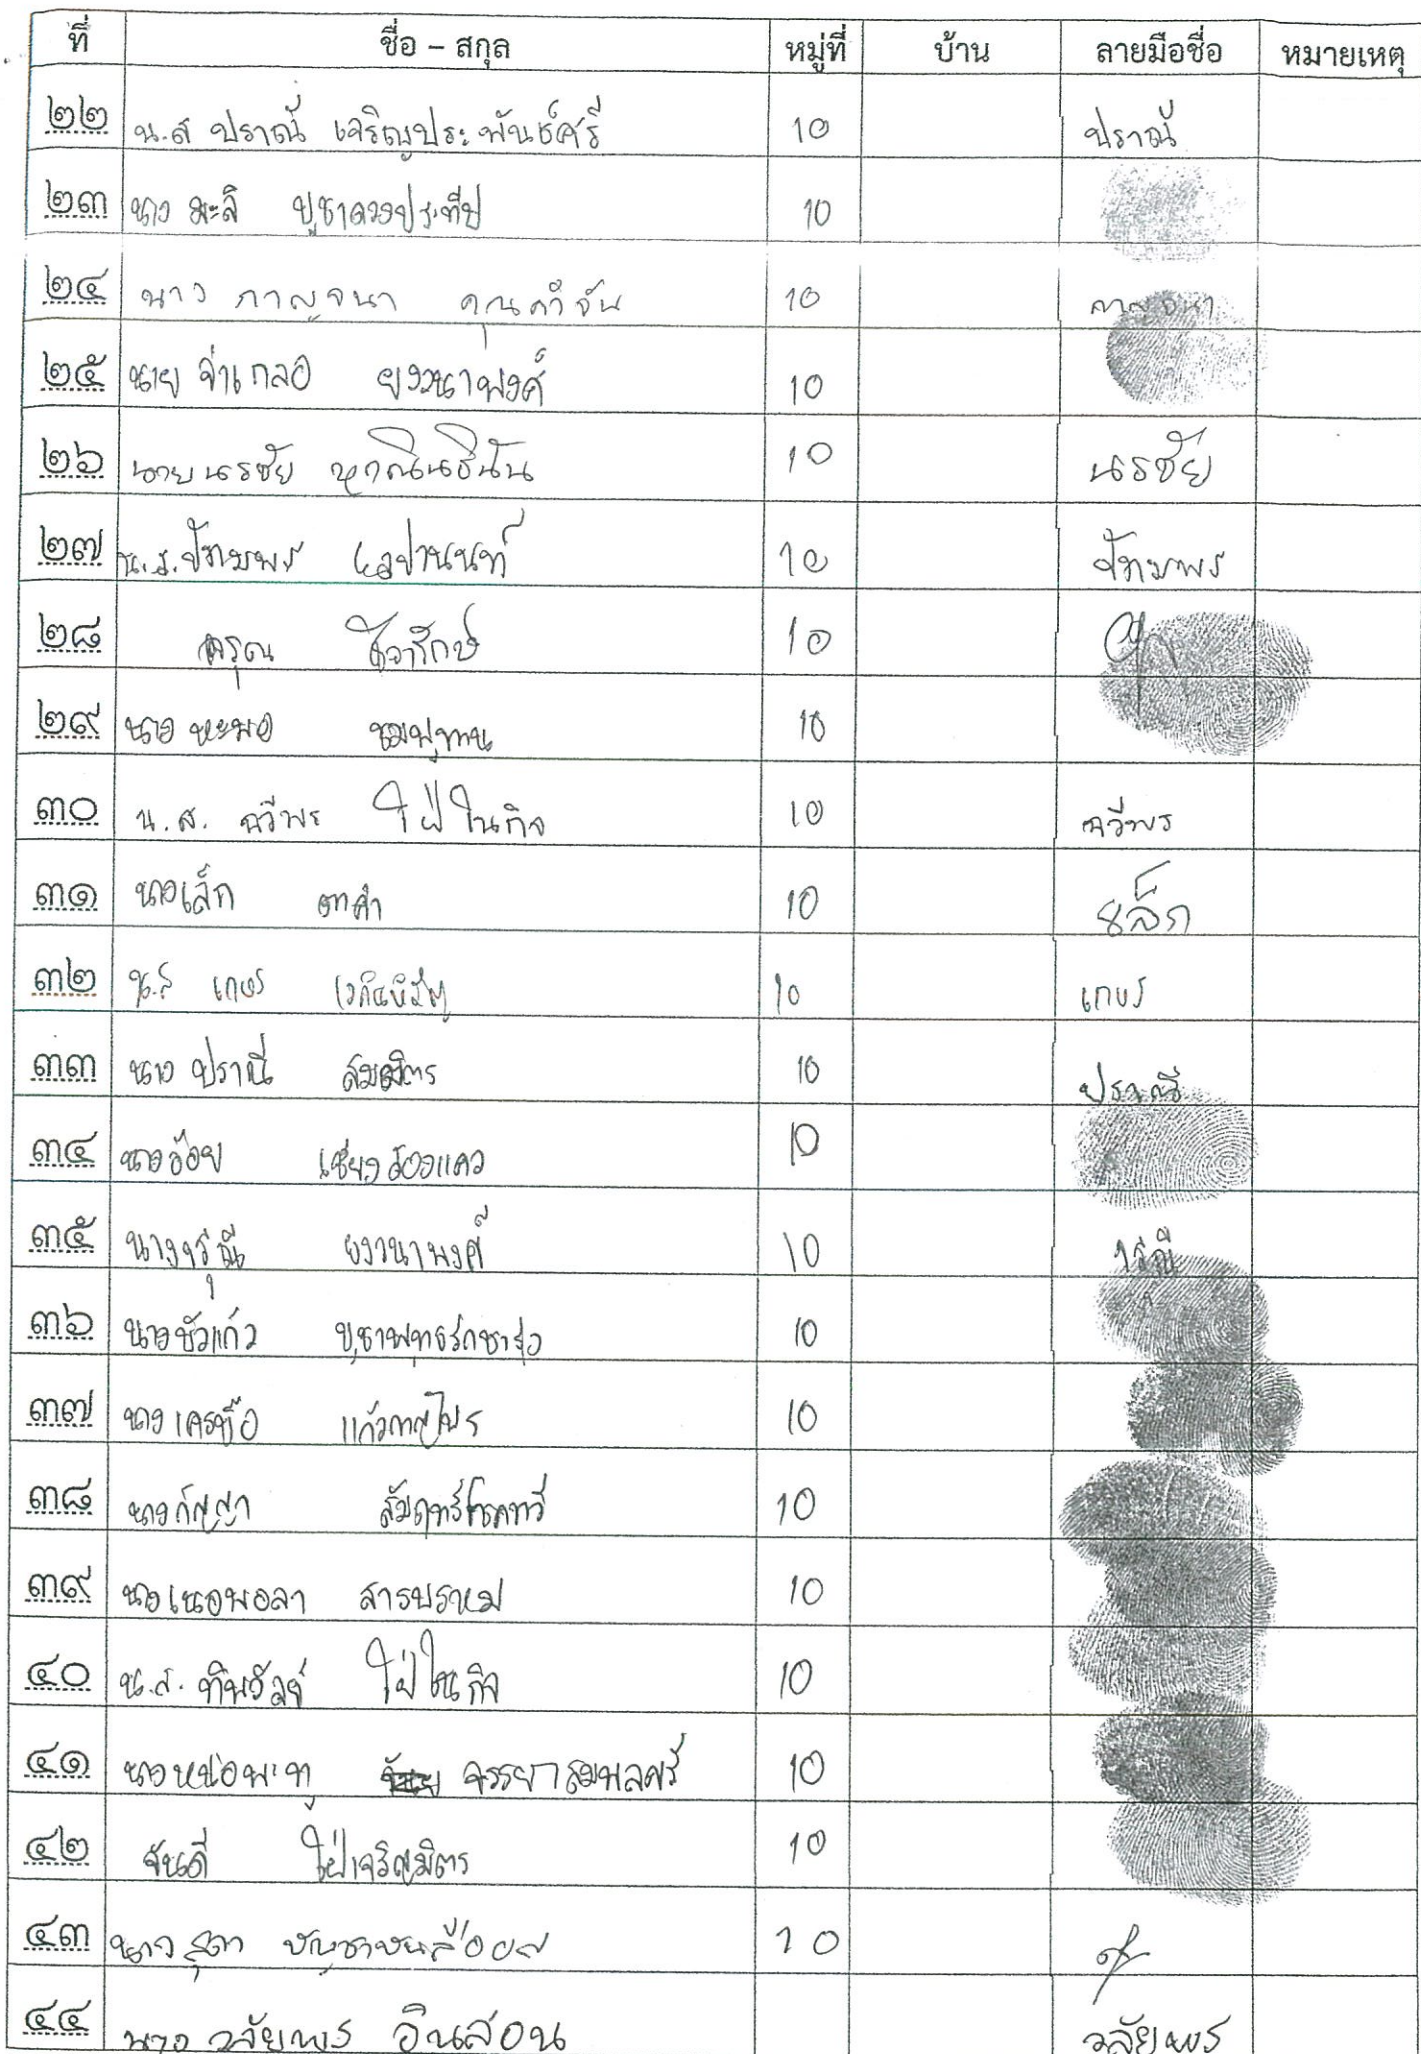 ที่ ชื่อ – สกุล หมู่ที่ บ้าน ลายมือชื่อ หมายเหตุ
๒๒ น.ส ปราณี เจริญประพันธ์ศรี 10 ปราณี
๒๓ นาง มะลิ บูชาดวงประทีป 10
๒๔ นาง กาญจนา คุณคำจัน 10 กาญจนา
๒๕ นาย จ่าเกลอ ยงวนาพงศ์ 10
๒๖ นาย นรชัย 10 นรชัย
๒๗ น.ส. ปัทมพร 10 ปัทมพร
๒๘ ดรุณ 10
๒๙ นาง หะพอ ชมภูทาน 10
๓๐ น.ส. ฉวีพร ใฝ่ในกิจ 10 ฉวีพร
๓๑ นางเล็ก ตาคำ 10 เล็ก
๓๒ น.ส เกษร 10 เกษร
๓๓ นาง ปราณี สมมิตร 10 ปราณี
๓๔ นางอ้อย เชียงร้องแคว 10
๓๕ นางจรุณี ยงวนาพงศ์ 10 จรุณี
๓๖ นางบัวแก้ว 10
๓๗ นาง เครบือ แก้วกาญไพร 10
๓๘ นางกัญญา 10
๓๙ นางเนอพอลา สารบรหม 10
๔๐ น.ส. ทิพวัลย์ ใฝ่ในกิจ 10
๔๑ นางหน่อพะทู จรรยาสมพลศรี 10
๔๒ จันดี ใฝ่เจริญมิตร 10
๔๓ นาง สุดา 10
๔๔ นาง วลัยพร อินสอน วลัยพร